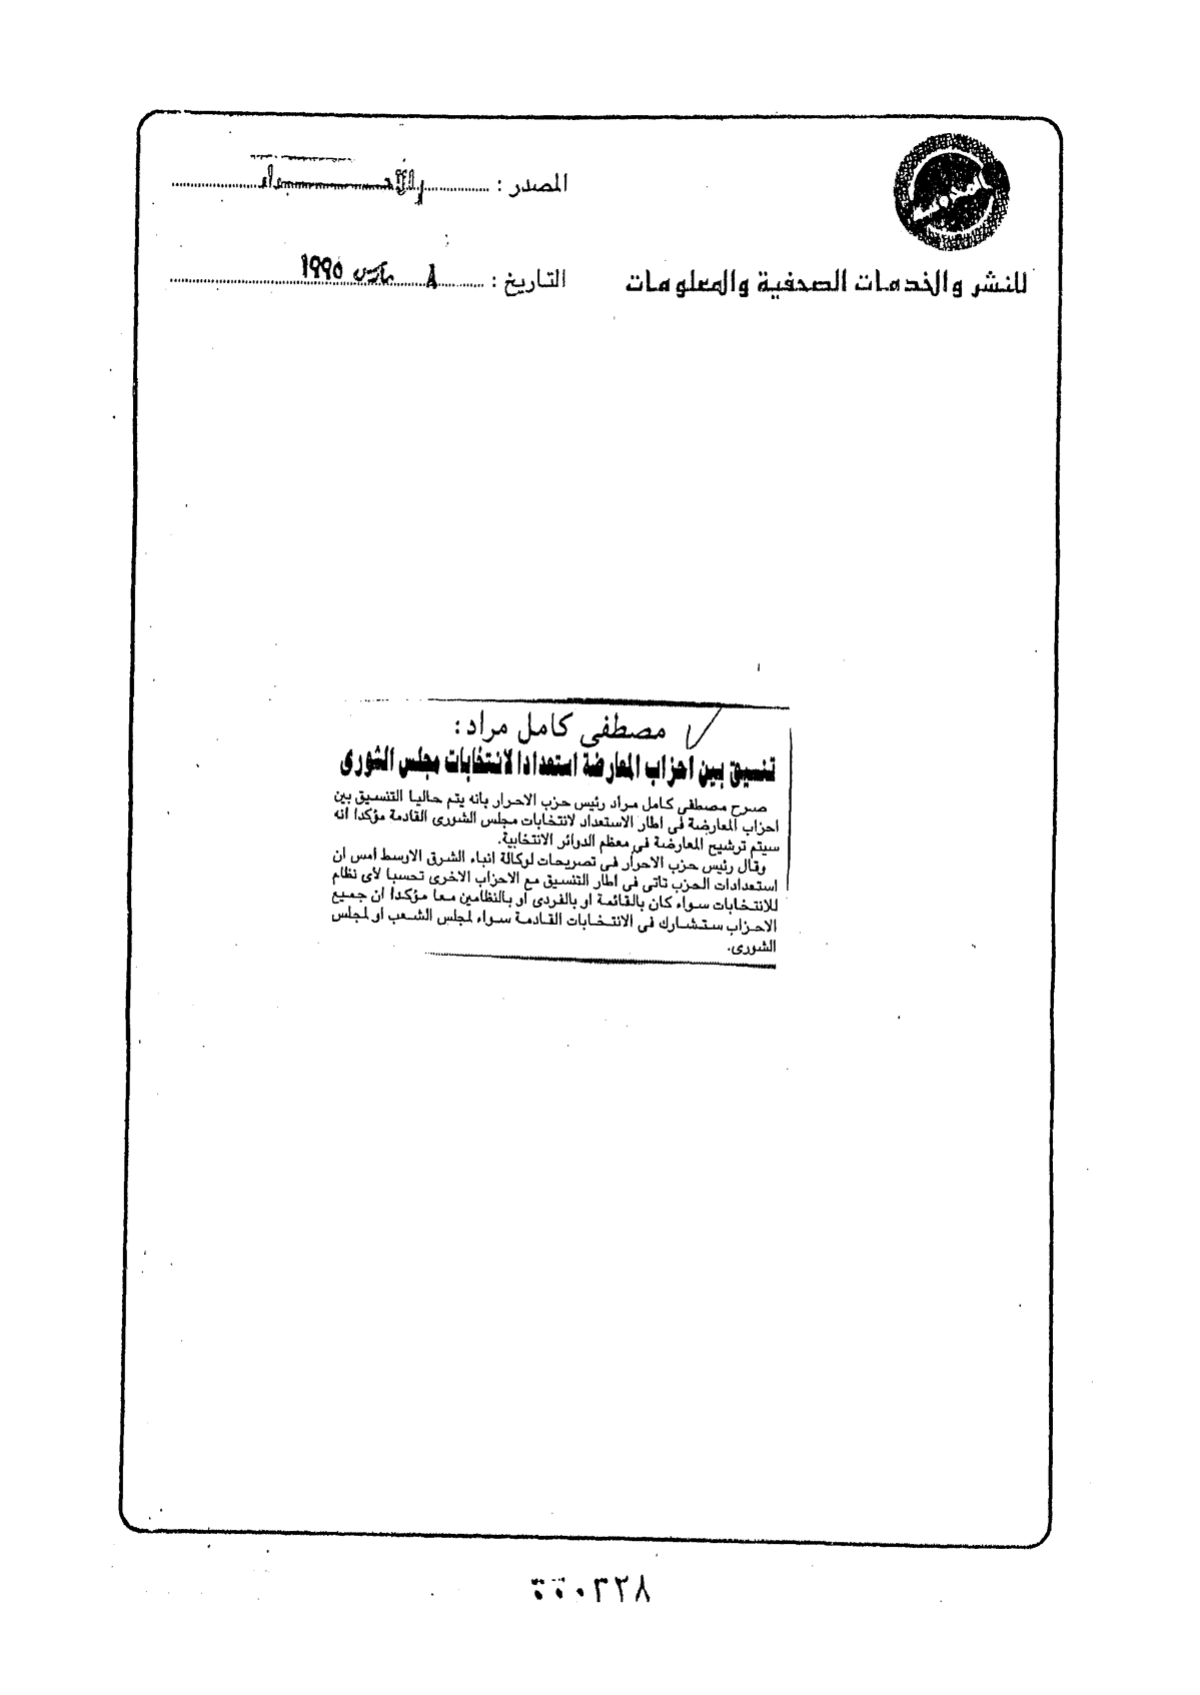 المصدر :
للنشر والخدمات الصحفية والمعلومات
التاريخ : ٨ مارس ١٩٩٥
مصطفى كامل مراد :
تنسيق بين احزاب المعارضة استعدادا لانتخابات مجلس الشورى
صرح مصطفى كامل مراد رئيس حزب الاحرار بانه يتم حاليا التنسيق بين
احزاب المعارضة فى اطار الاستعداد لانتخابات مجلس الشورى القادمة مؤكدا انه
سيتم ترشيح المعارضة فى معظم الدوائر الانتخابية.
وقال رئيس حزب الاحرار فى تصريحات لوكالة انباء الشرق الاوسط امس ان
استعدادات الحزب تاتى فى اطار التنسيق مع الاحزاب الاخرى تحسبا لأى نظام
للانتخابات سواء كان بالقائمة او بالفردى او بالنظامين معا مؤكدا ان جميع
الاحزاب ستشارك فى الانتخابات القادمة سواء لمجلس الشعب او لمجلس
الشورى.